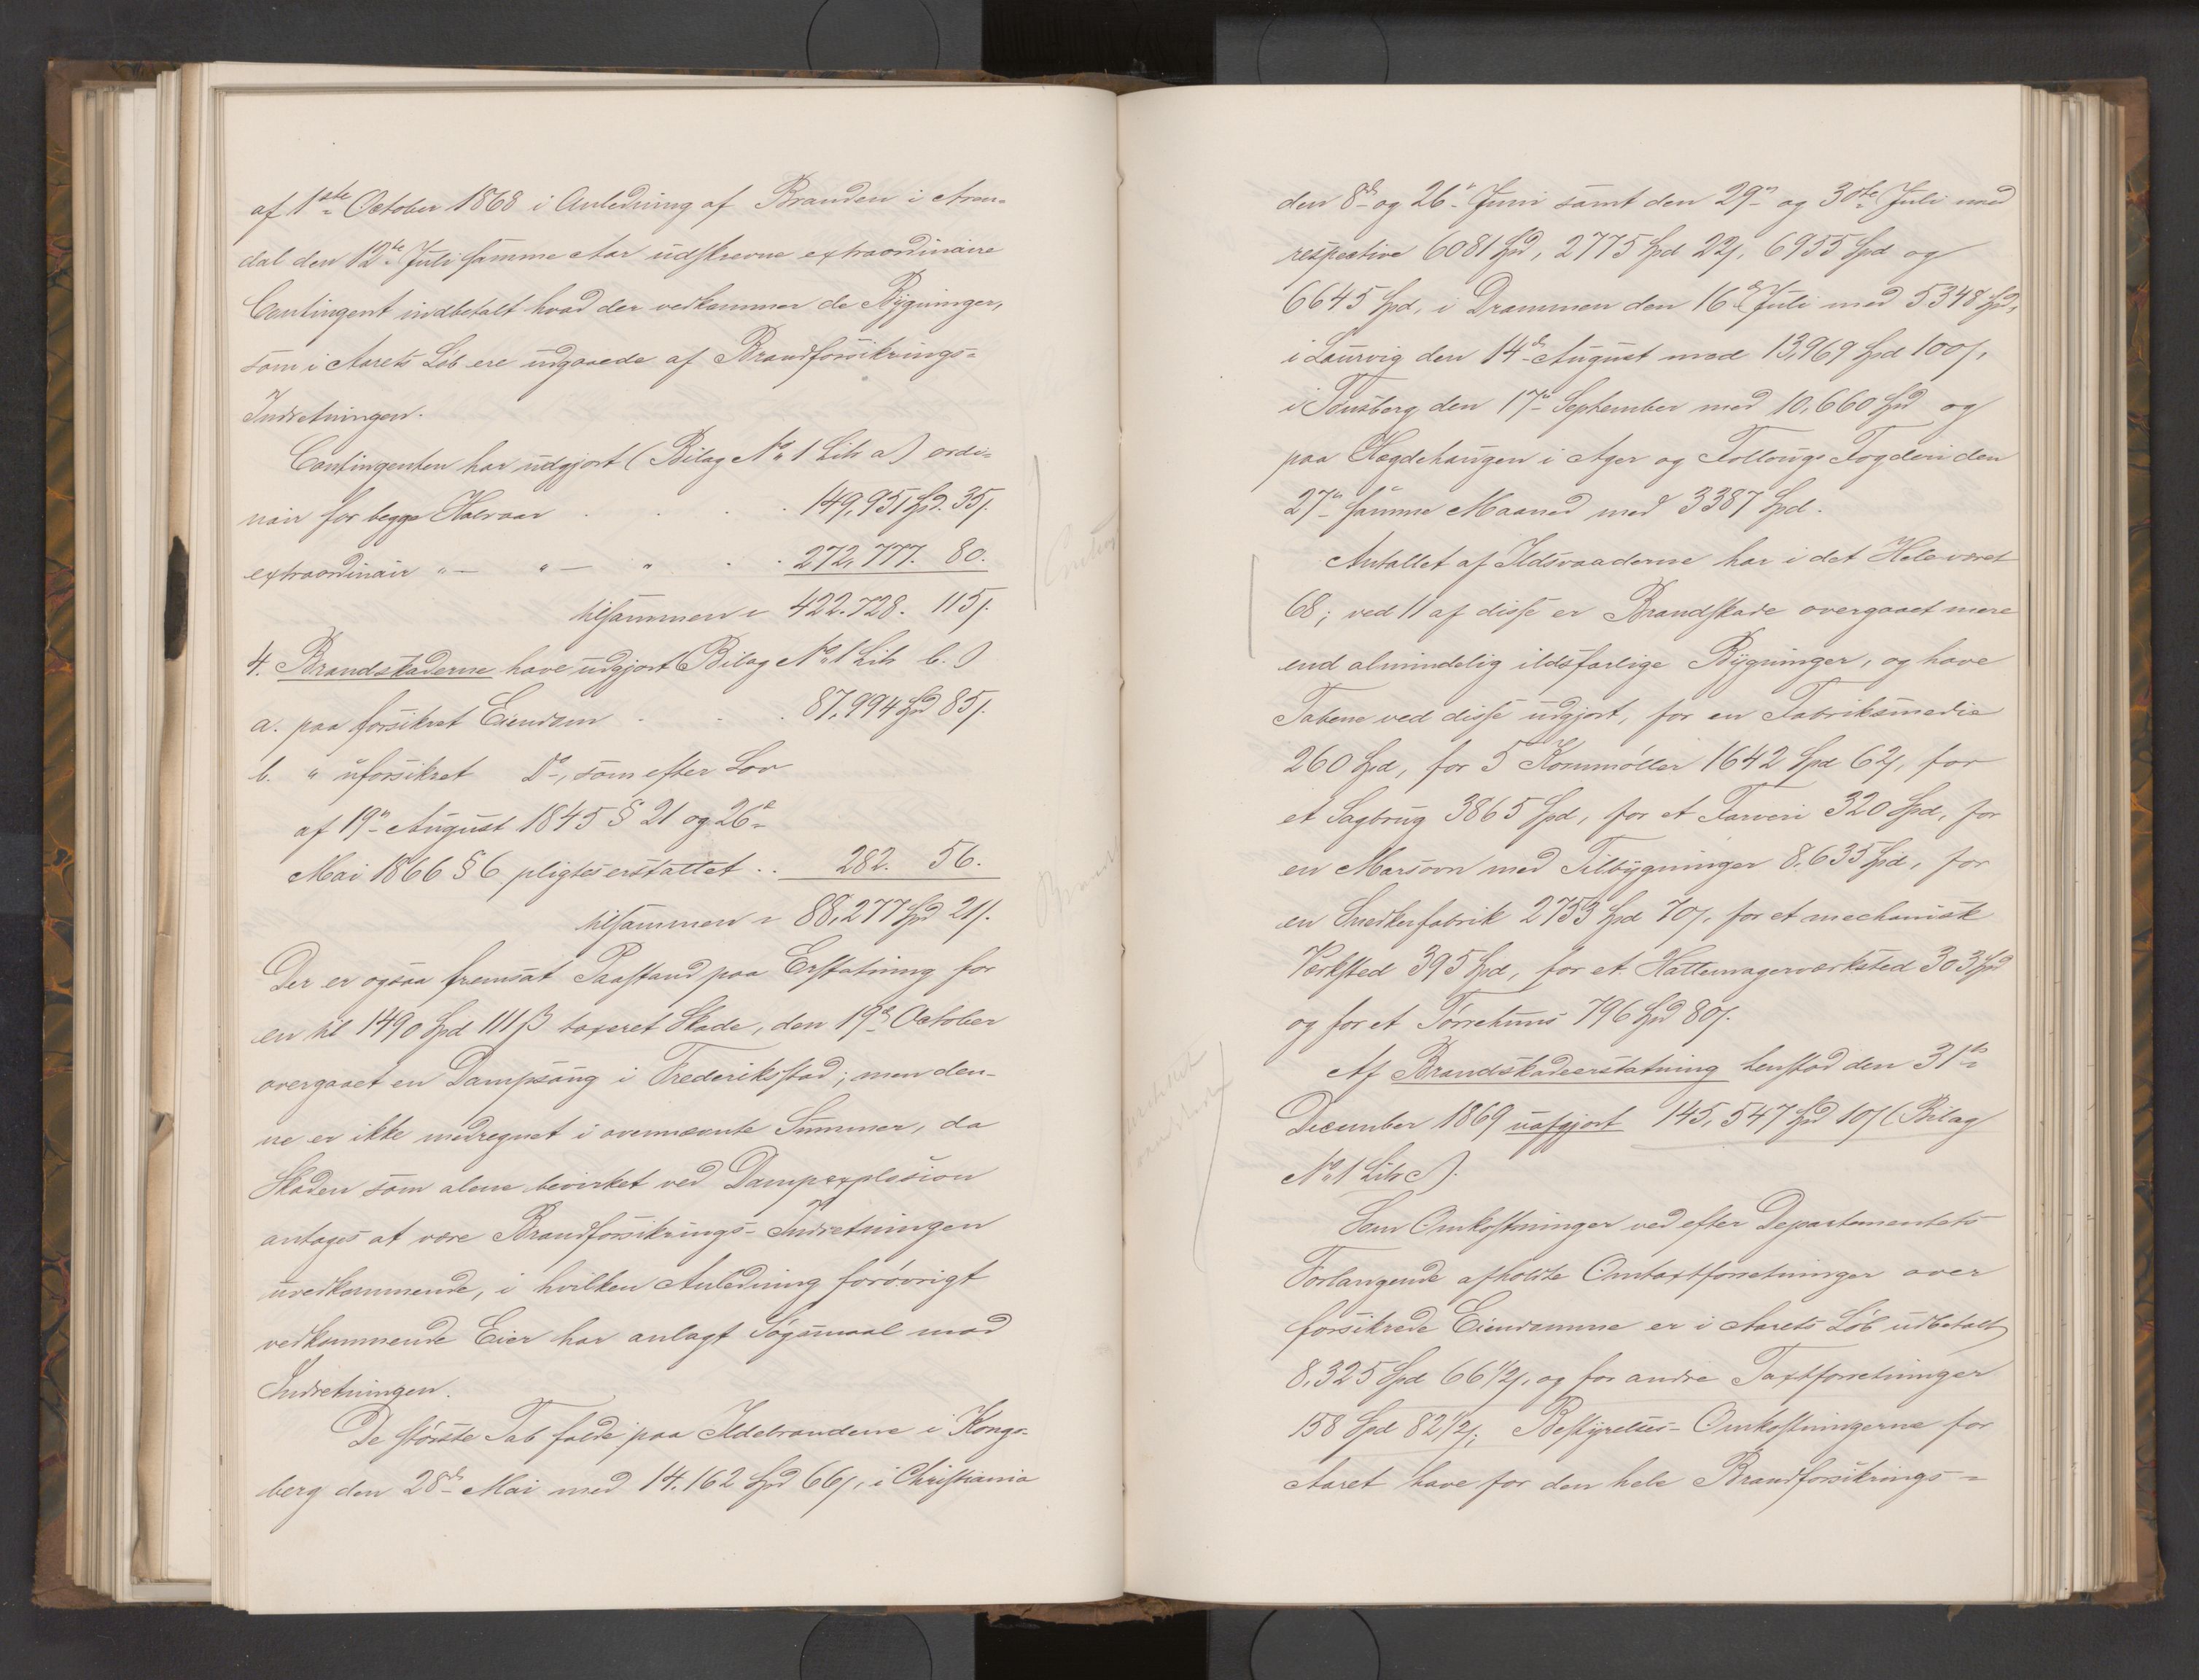 af 1ste October 1868 i Anledning af Branden i Aren-
dal den 12te Juli samme Aar udskrevne extraordinaire
Contingent indbetalt hvad der vedkommer de Bygninger,
som i Aarets Løb ere udgaaede af Brandforsikrings-
Indretningen.
Contingenten har udgjort (Bilag No 1 Litr a) ordi-
nair for begge Halvaar . . . . 149,951 Spd. 35 ß.
extraordinair "— "— " . . 272,777. 80.
tilsammen = 422.728. 115 ß.
4. Brandskaderne have udgjort (Bilag No 1 Litr b.)
a. paa forsikret Eiendom . . . 87,994 Spd 85 ß.
b. " uforsikret Do, som efter Lov
af 19de August 1845 § 21 og 26de
Mai 1866 § 6 pligtes erstattet . . 282. 56.
tilsammen = 88,277 Spd 21 ß.
Der er ogsaa fremsat Paastand paa Erstatning for
en til 1490 Spd 111 ß taxeret Skade, den 19de October
overgaaet en Dampsaug i Frederiksstad; men den-
ne er ikke medregnet i ovennævnte Summer, da
Skaden som alene bevirket ved Dampexplosion
antages at være Brandforsikrings-Indretningen
uvedkommende, i hvilken Anledning forøvrigt
vedkommende Eier har anlagt Søgsmaal mod
Indretningen.
De største Tab falde paa Ildebrandene i Kongs-
berg den 28de Mai med 14.162 Spd 66 ß, i Christiania
den 8de og 26de Juni samt den 29de og 30te Juli med
respective 6081 Spd, 2775 Spd 22 ß, 6955 Spd og
6645 Spd, i Drammen den 16de Juli med 5348 Spd,
i Laurvig den 14de August med 13,969 Spd 100 ß,
i Tønsberg den 17de September med 10,660 Spd og
paa Hægdehaugen i Ager og Follougs Fogderi den
27de samme Maaned med 3387 Spd.
Antallet af Ildsvaaderne har i det Hele været
68; ved 11 af disse er Brandskade overgaaet mere
end almindelig ildsfarlige Bygninger, og have
Tabene ved disse udgjort, for en Fabriksmedie
260 Spd, for 5 Kornmøller 1642 Spd 62 ß, for
et Sagbrug 3865 Spd, for et Farveri 320 Spd, for
en Marsovn med Tilbygninger 8.635 Spd, for
en Snedkerfabrik 2753 Spd 70 ß, for et mechanisk
Værksted 395 Spd, for et Hattemagerværksted 303 Spd
og for et Tørrehuus 796 Spd 80 ß.
Af Brandskadeerstatning henstod den 31te
December 1869 uafgjort 145,547 Spd 10 ß (Bilag
No 1 Litr c).
Som Omkostninger ved efter Departementets
Forlangende afholdte Omtaxtforretninger over
forsikrede Eiendomme er i Aarets Løb udbetalt
8,325 Spd 66 1/2 ß, og for andre Taxtforretninger
158 Spd 82 1/2 ß; Bestyrelses-Omkostningerne for
Aaret have for den hele Brandforsikrings-